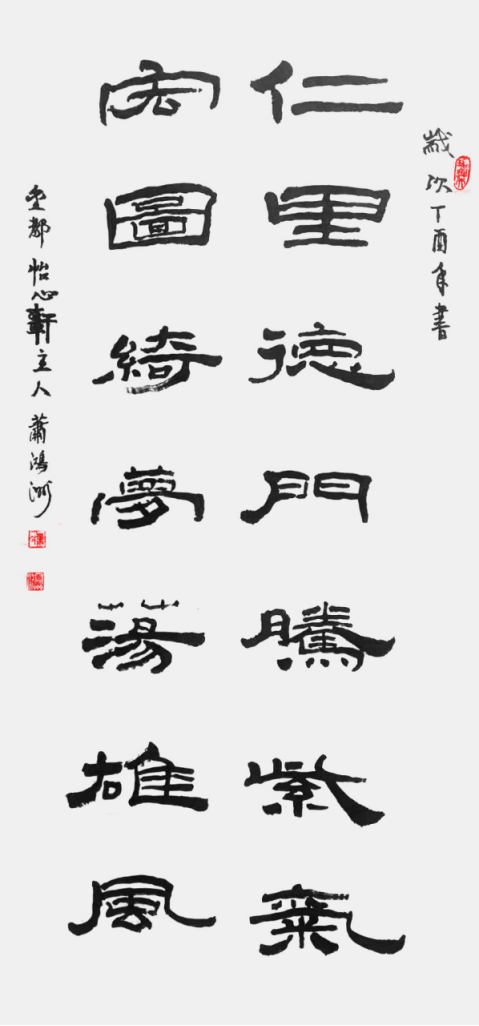 歲次丁酉年書
仁里德門騰紫氣
宏圖綺夢蕩雄風
都怡心軒主人蕭鴻